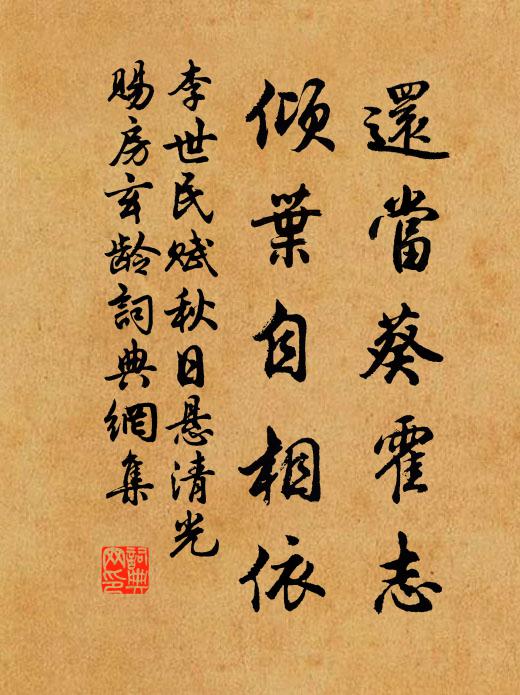 還當葵霍志
傾葉自相依
李世民赋秋日悬清光
賜房玄齡詞典網集
詞典
网印